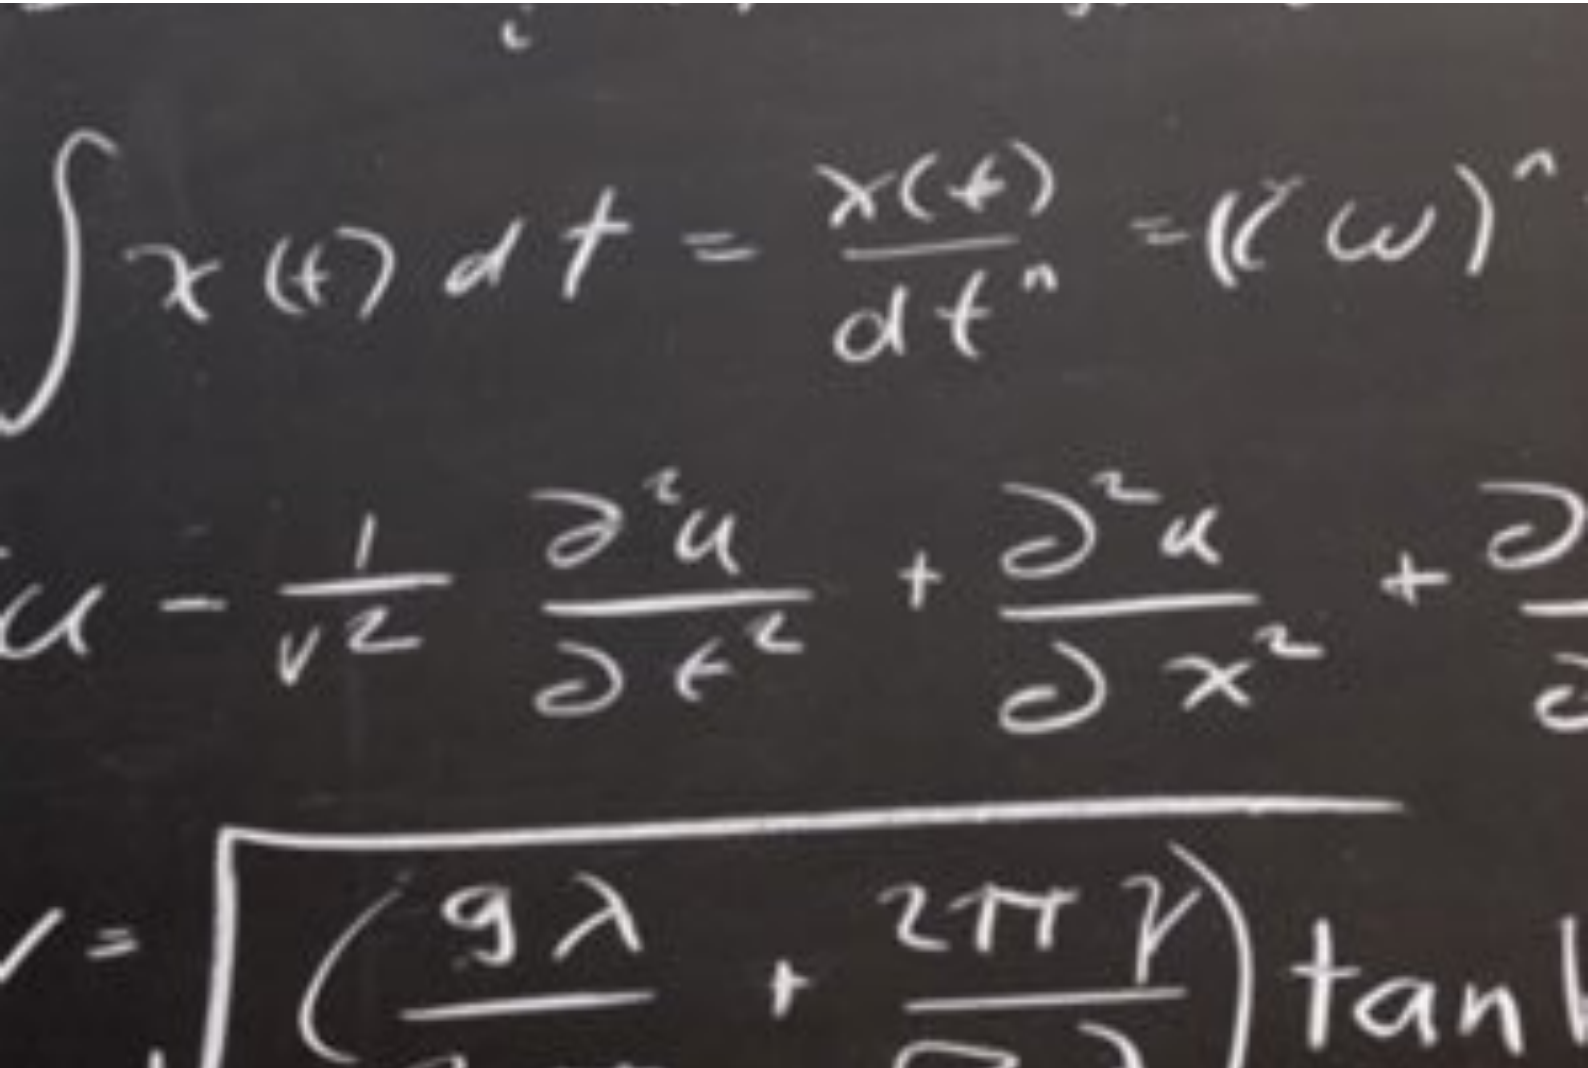 ∫ x(t) dt = x(t)/dtⁿ = (i ω)ⁿ
u - 1/v² ∂²u/∂t² + ∂²u/∂x² + ∂
v = √(gλ + 2πγ) tanh